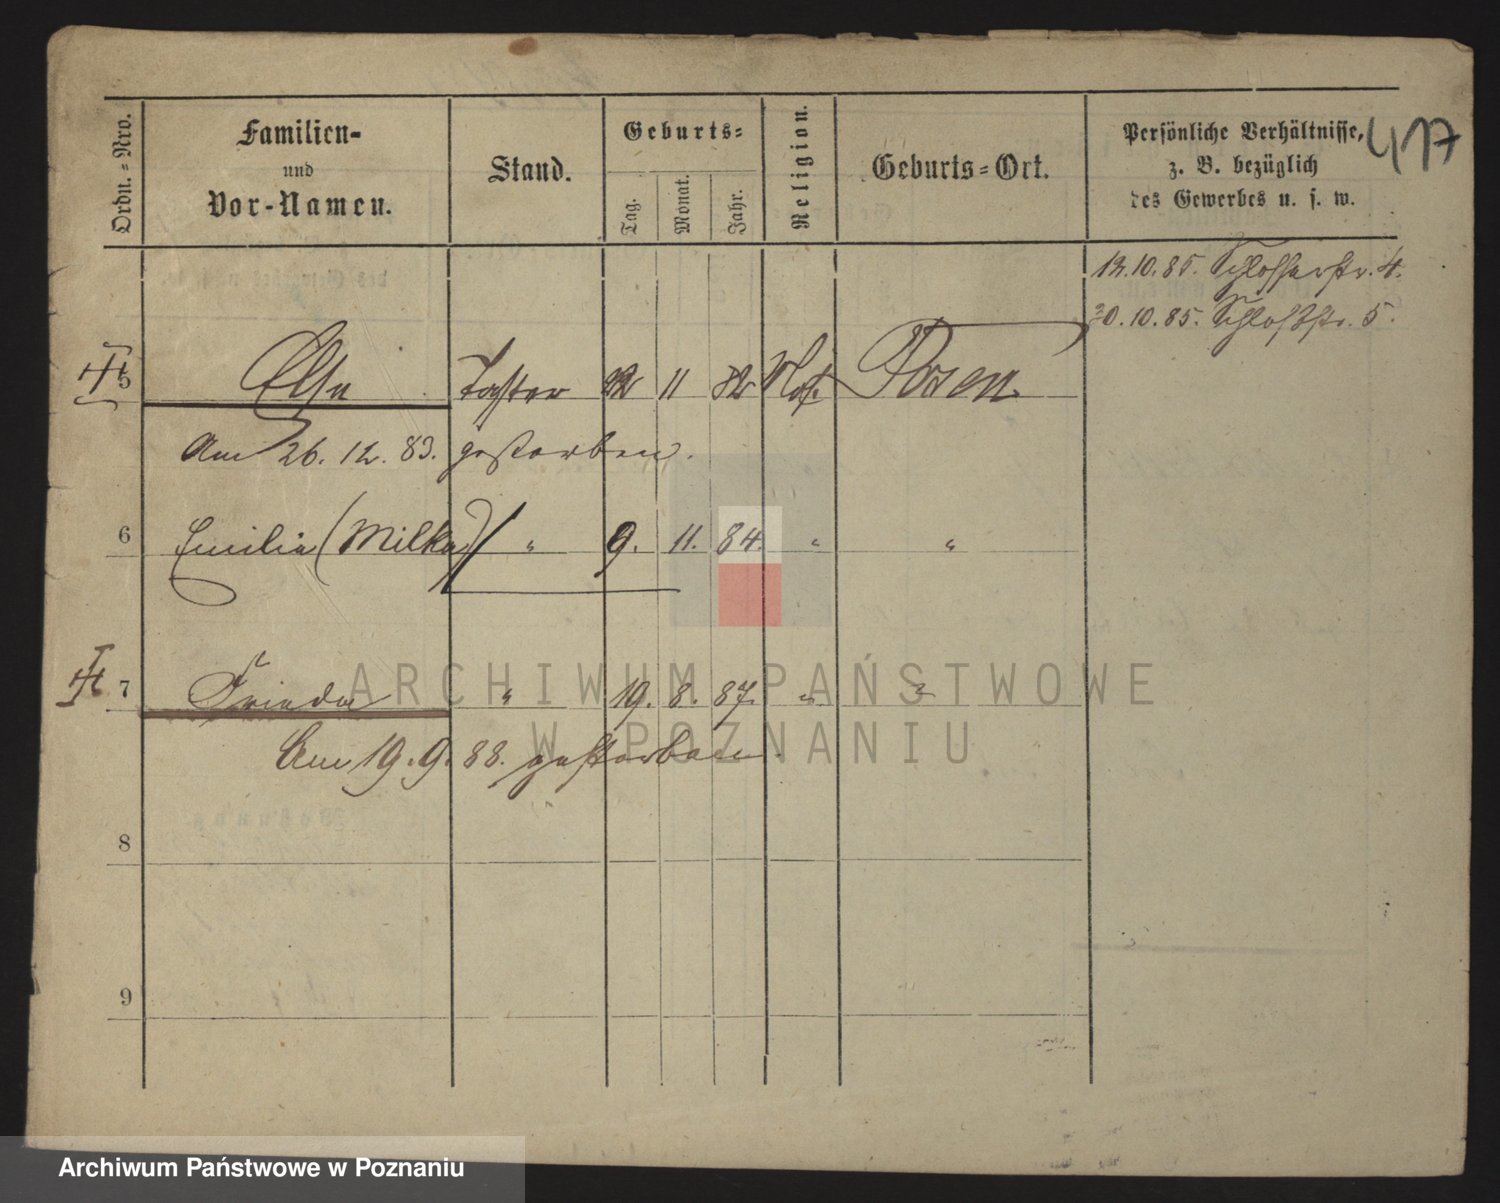 Ordn.=Nro.
Familien-
und
Vor-Namen.
Stand.
Geburts=
Tag.
Monat.
Jahr.
Religion.
Geburts=Ort.
Persönliche Verhältnisse,
z. B. bezüglich
des Gewerbes u. s. w.
417
12.10.85. Schlosserstr. 4.
30.10.85. Schloßstr. 5.
5 Else Tochter 22 11 82 Mos. Posen
Am 26. 12. 83. gestorben.
6 Emilie (Milka) " 9. 11. 84. " "
7 Frieda " 19. 8. 87. " "
Am 19. 9. 88. gestorben.
8
9
ARCHIWUM PAŃSTWOWE
W POZNANIU
Archiwum Państwowe w Poznaniu